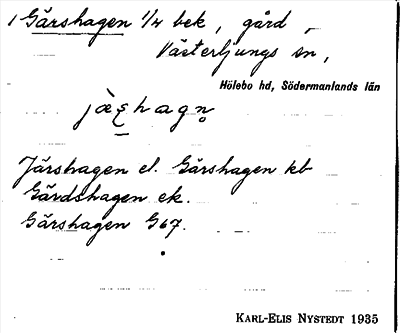 1 Gärshagen 1/4 bek, gård
Västerljungs sn,
Hölebo hd, Södermanlands län
Järshagen el. Gärshagen kb
Gärdshagen ek.
Gärshagen G67.
KARL-ELIS NYSTEDT 1935